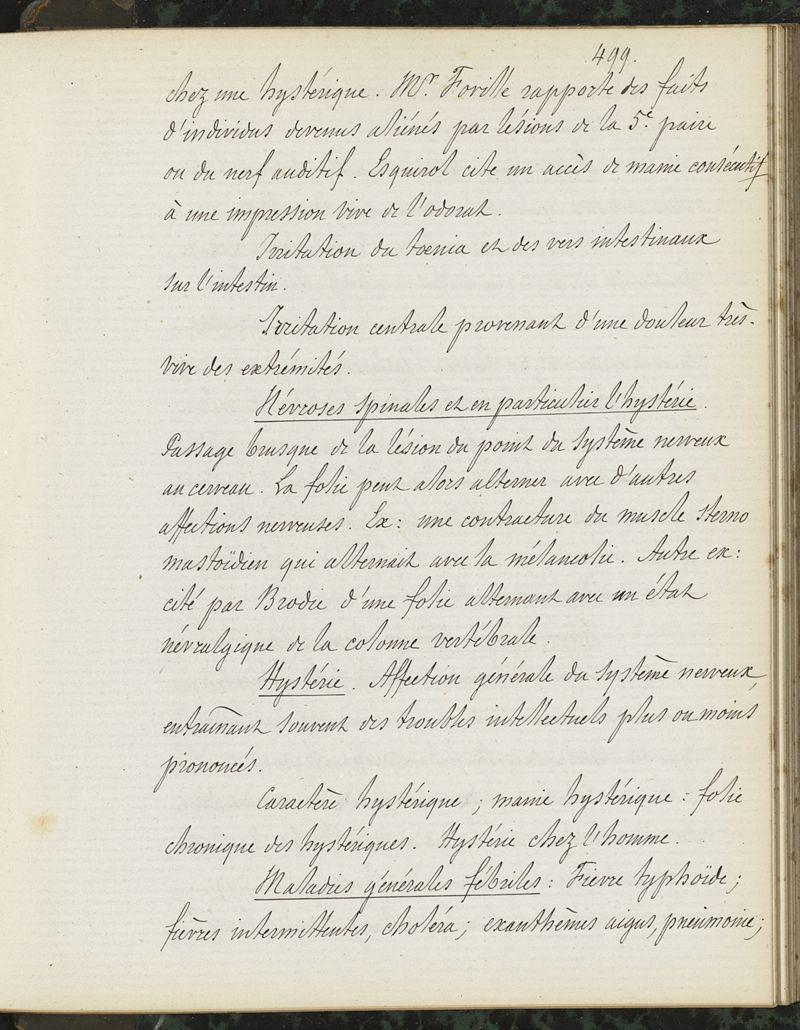 499.
chez une hystérique. Mr. Foville rapporte des faits
d'individus devenus aliénés par lésions de la 5e paire
ou du nerf auditif. Esquirol cite un accès de manie consécutif
à une impression vive de l'odorat.
Irritation du tœnia et des vers intestinaux
sur l'intestin.
Irritation centrale provenant d'une douleur très-
vive des extrémités.
Névroses spinales et en particulier l'hystérie.
Passage brusque de la lésion du point du système nerveux
au cerveau. La folie peut alors alterner avec d'autres
affections nerveuses. Ex: une contracture du muscle sterno
mastoïdien qui alternait avec la mélancolie. Autre ex:
cité par Brodie d'une folie alternant avec un état
névralgique de la colonne vertébrale.
Hystérie. Affection générale du système nerveux,
entraînant souvent des troubles intellectuels plus ou moins
prononcés.
Caractère hystérique; manie hystérique: folie
chronique des hystériques. Hystérie chez l'homme.
Maladies générales fébriles: Fièvre typhoïde;
fièvres intermittentes, choléra; exanthèmes aigus, pneumonie;